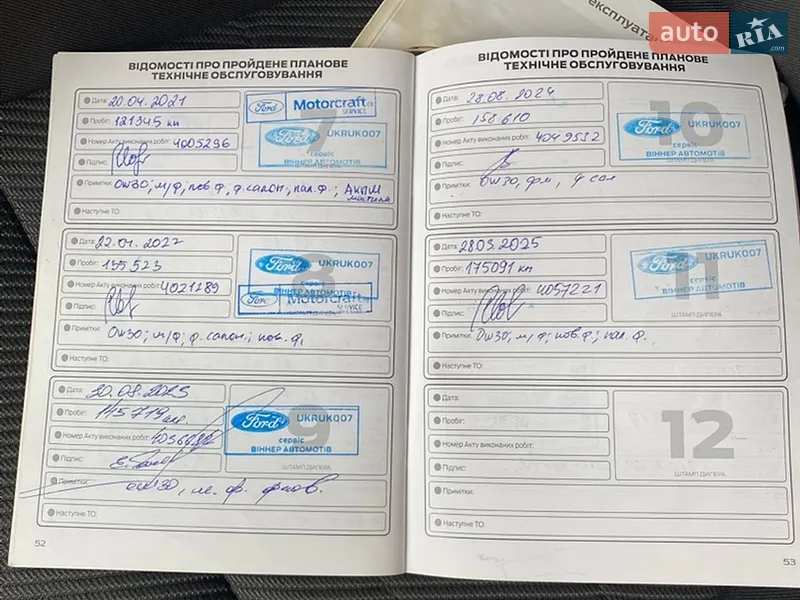 експлуата
auto RIA.com
ВІДОМОСТІ ПРО ПРОЙДЕНЕ ПЛАНОВЕ
ТЕХНІЧНЕ ОБСЛУГОВУВАННЯ
7
Дата: 20.04.2021
Ford Motorcraft SERVICE
Пробіг: 121345 км
Ford UKRUK007
Номер Акту виконаних робіт: 4005296
сервіс
ВІННЕР АВТОМОТІВ
Підпис:
ШТАМП ДИЛЕРА
Примітки: 0w30; м/ф; пов ф, ф. салон; пал. ф; АКПП
Наступне ТО:
8
Дата: 22.01.2022
Ford UKRUK007
Пробіг: 135523
сервіс
Номер Акту виконаних робіт: 4021289
Ford Motorcraft SERVICE
Підпис:
Примітки: 0w30; м/ф; ф. салон; пов. ф.
Наступне ТО:
9
Дата: 30.08.2023
Ford UKRUK007
Пробіг: 145714
сервіс
ВІННЕР АВТОМОТІВ
Номер Акту виконаних робіт:
Підпис:
ШТАМП ДИЛЕРА
Примітки: 0w30, м. ф. ф пов.
Наступне ТО:
52
ВІДОМОСТІ ПРО ПРОЙДЕНЕ ПЛАНОВЕ
ТЕХНІЧНЕ ОБСЛУГОВУВАННЯ
10
Дата: 28.08.2024
Пробіг: 158610
Ford UKRUK007
Номер Акту виконаних робіт: 4049532
сервіс
ВІННЕР АВТОМОТІВ
Підпис:
ШТАМП ДИЛЕРА
Примітки: 0w30, фм, ф сал
Наступне ТО:
11
Дата: 28.03.2025
Ford UKRUK007
Пробіг: 175091 км
сервіс
ВІННЕР АВТОМОТІВ
Номер Акту виконаних робіт: 4057221
Підпис:
ШТАМП ДИЛЕРА
Примітки: 0w30; м/ф; пов. ф.; пал. ф.
Наступне ТО:
12
Дата:
Пробіг:
Номер Акту виконаних робіт:
Підпис:
ШТАМП ДИЛЕРА
Примітки:
Наступне ТО:
53